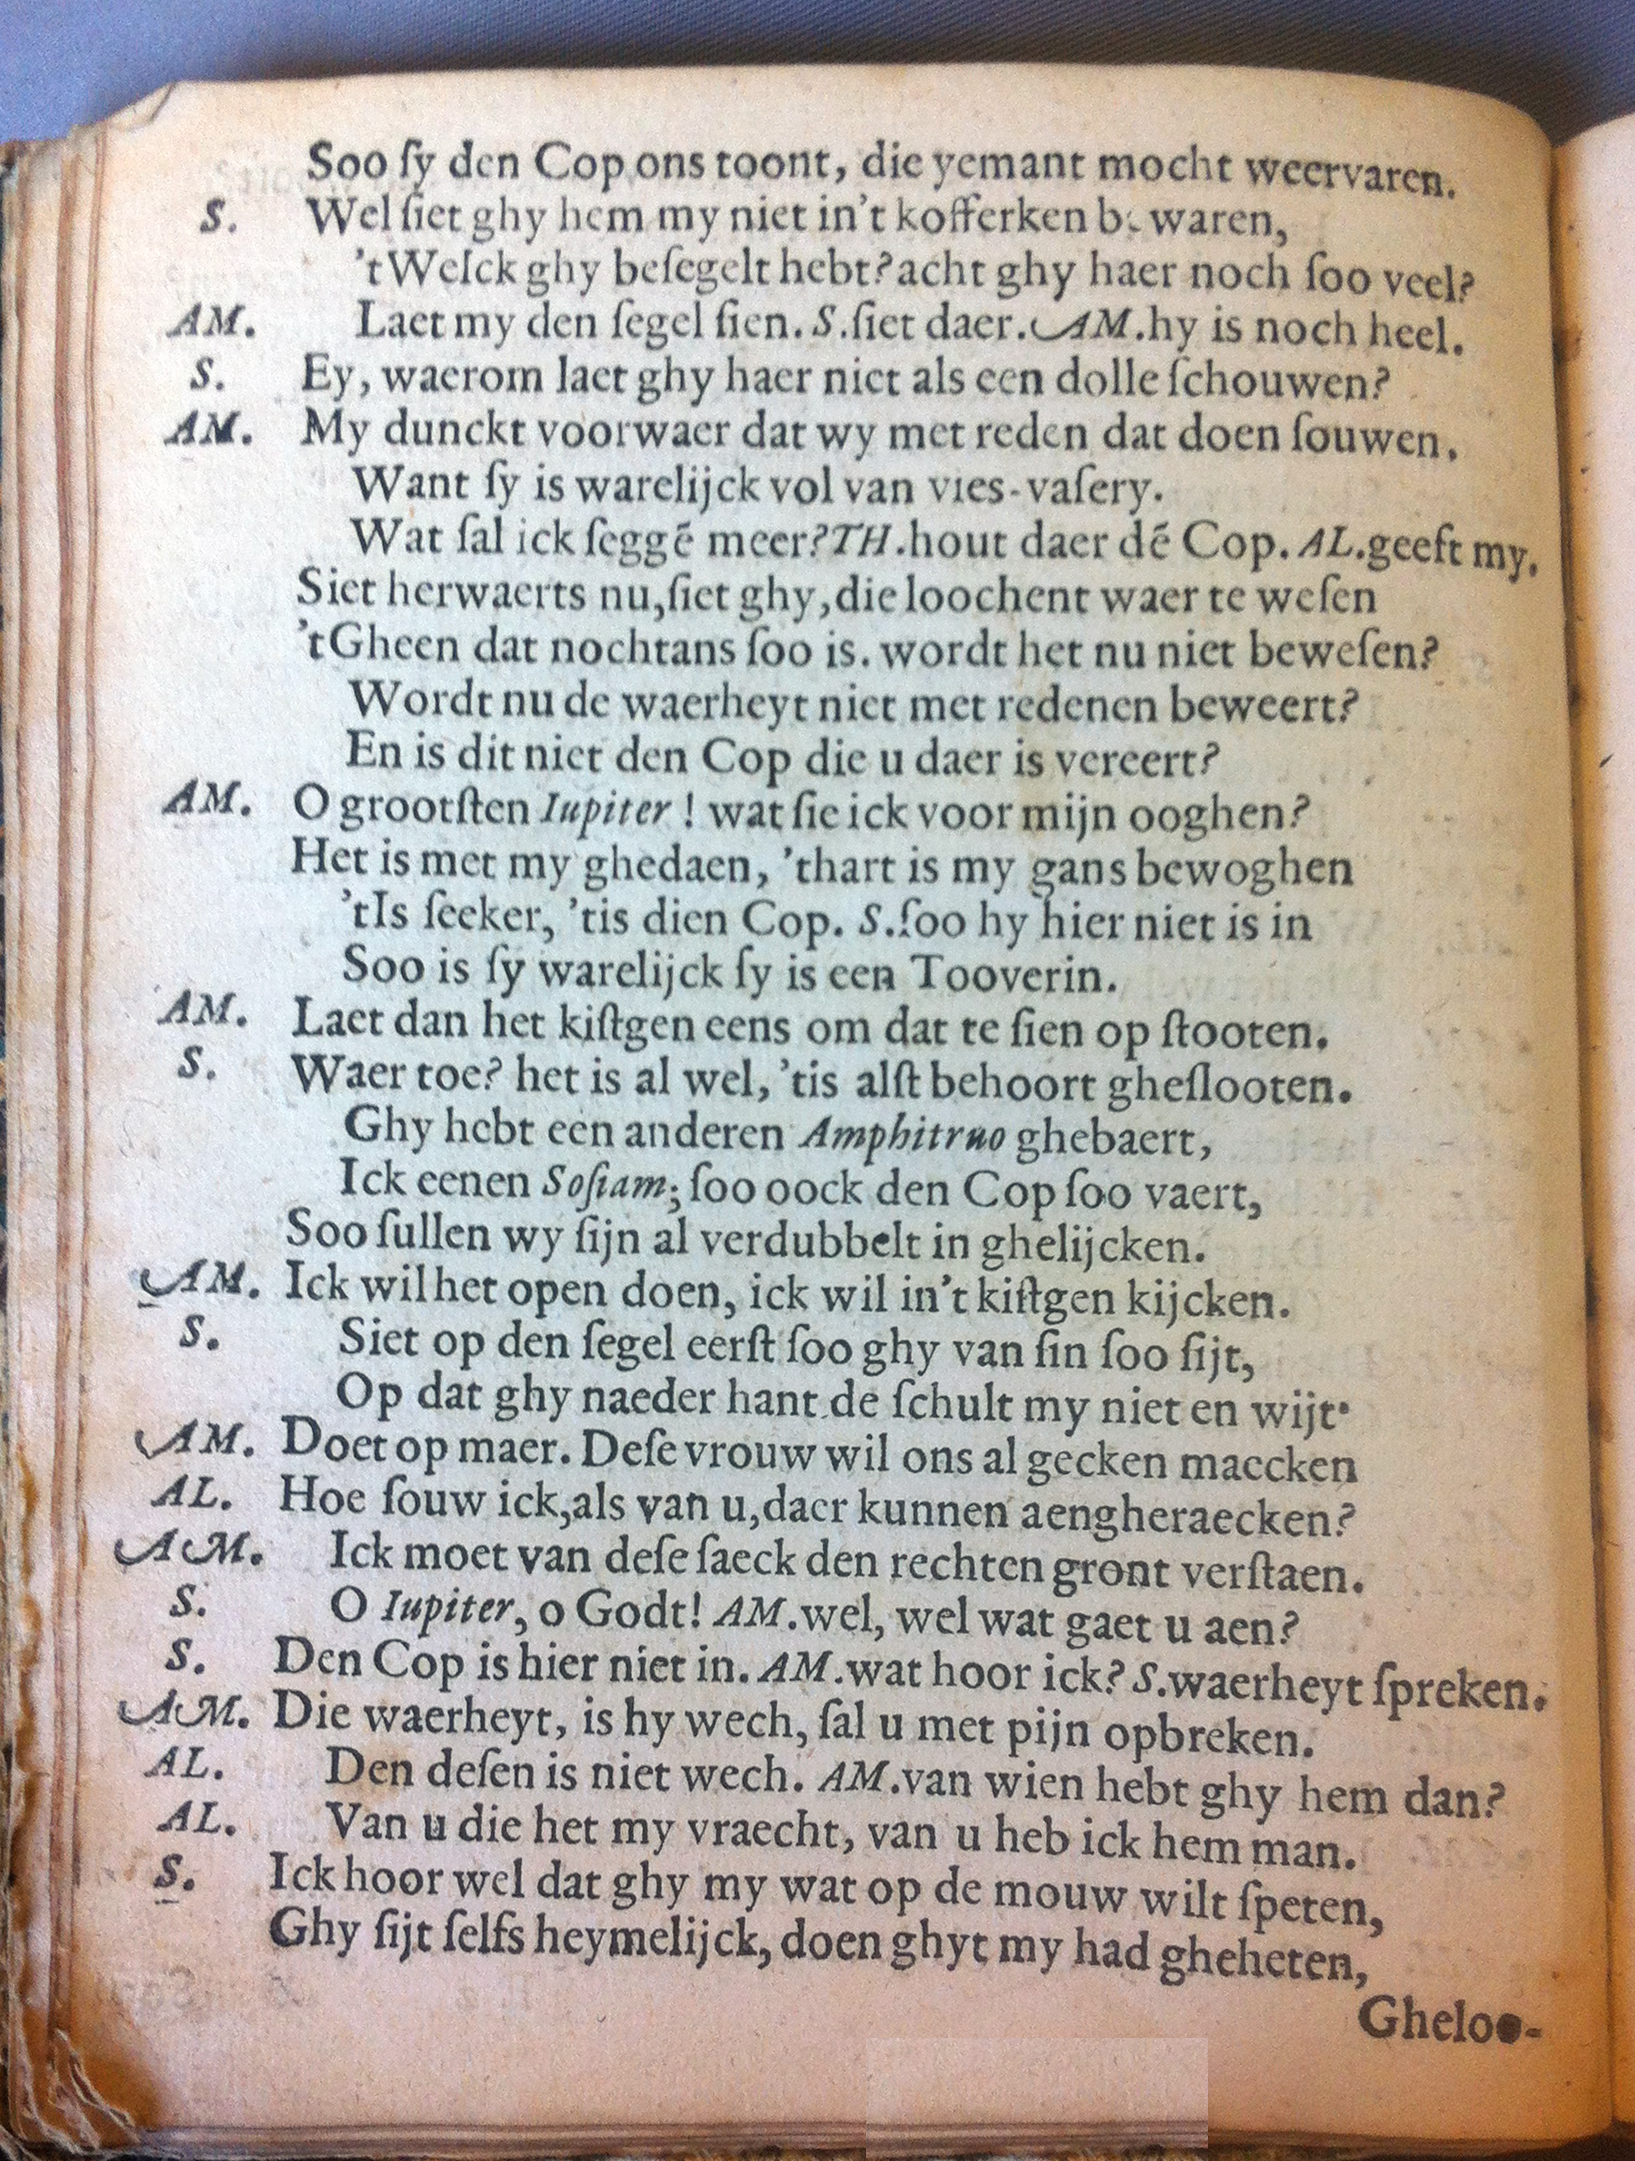 Soo ſy den Cop ons toont, die yemant mocht weervaren.
S. Wel ſiet ghy hem my niet in't kofferken b waren,
'tWelck ghy beſegelt hebt? acht ghy haer noch ſoo veel?
AM. Laet my den ſegel ſien. S. ſiet daer. AM. hy is noch heel.
S. Ey, waerom laet ghy haer niet als een dolle ſchouwen?
AM. My dunckt voorwaer dat wy met reden dat doen ſouwen.
Want ſy is warelijck vol van vies-vaſery.
Wat ſal ick ſeggē meer? TH. hout daer dē Cop. AL. geeft my.
Siet herwaerts nu, ſiet ghy, die loochent waer te weſen
'tGheen dat nochtans ſoo is. wordt het nu niet beweſen?
Wordt nu de waerheyt niet met redenen beweert?
En is dit niet den Cop die u daer is vereert?
AM. O grootſten Iupiter! wat ſie ick voor mijn ooghen?
Het is met my ghedaen, 'thart is my gans bewoghen
'tIs ſeeker, 'tis dien Cop. S. ſoo hy hier niet is in
Soo is ſy warelijck ſy is een Tooverin.
AM. Laet dan het kiſtgen eens om dat te ſien op ſtooten.
S. Waer toe? het is al wel, 'tis alſt behoort gheſlooten.
Ghy hebt een anderen Amphitruo ghebaert,
Ick eenen Soſiam; ſoo oock den Cop ſoo vaert,
Soo ſullen wy ſijn al verdubbelt in ghelijcken.
AM. Ick wil het open doen, ick wil in't kiſtgen kijcken.
S. Siet op den ſegel eerſt ſoo ghy van ſin ſoo ſijt,
Op dat ghy naeder hant de ſchult my niet en wijt.
AM. Doet op maer. Deſe vrouw wil ons al gecken maecken
AL. Hoe ſouw ick, als van u, daer kunnen aengheraecken?
AM. Ick moet van deſe ſaeck den rechten gront verſtaen.
S. O Iupiter, o Godt! AM. wel, wel wat gaet u aen?
S. Den Cop is hier niet in. AM. wat hoor ick? S. waerheyt ſpreken.
AM. Die waerheyt, is hy wech, ſal u met pijn opbreken.
AL. Den deſen is niet wech. AM. van wien hebt ghy hem dan?
AL. Van u die het my vraecht, van u heb ick hem man.
S. Ick hoor wel dat ghy my wat op de mouw wilt ſpeten,
Ghy ſijt ſelfs heymelijck, doen ghyt my had gheheten,
Gheloo-